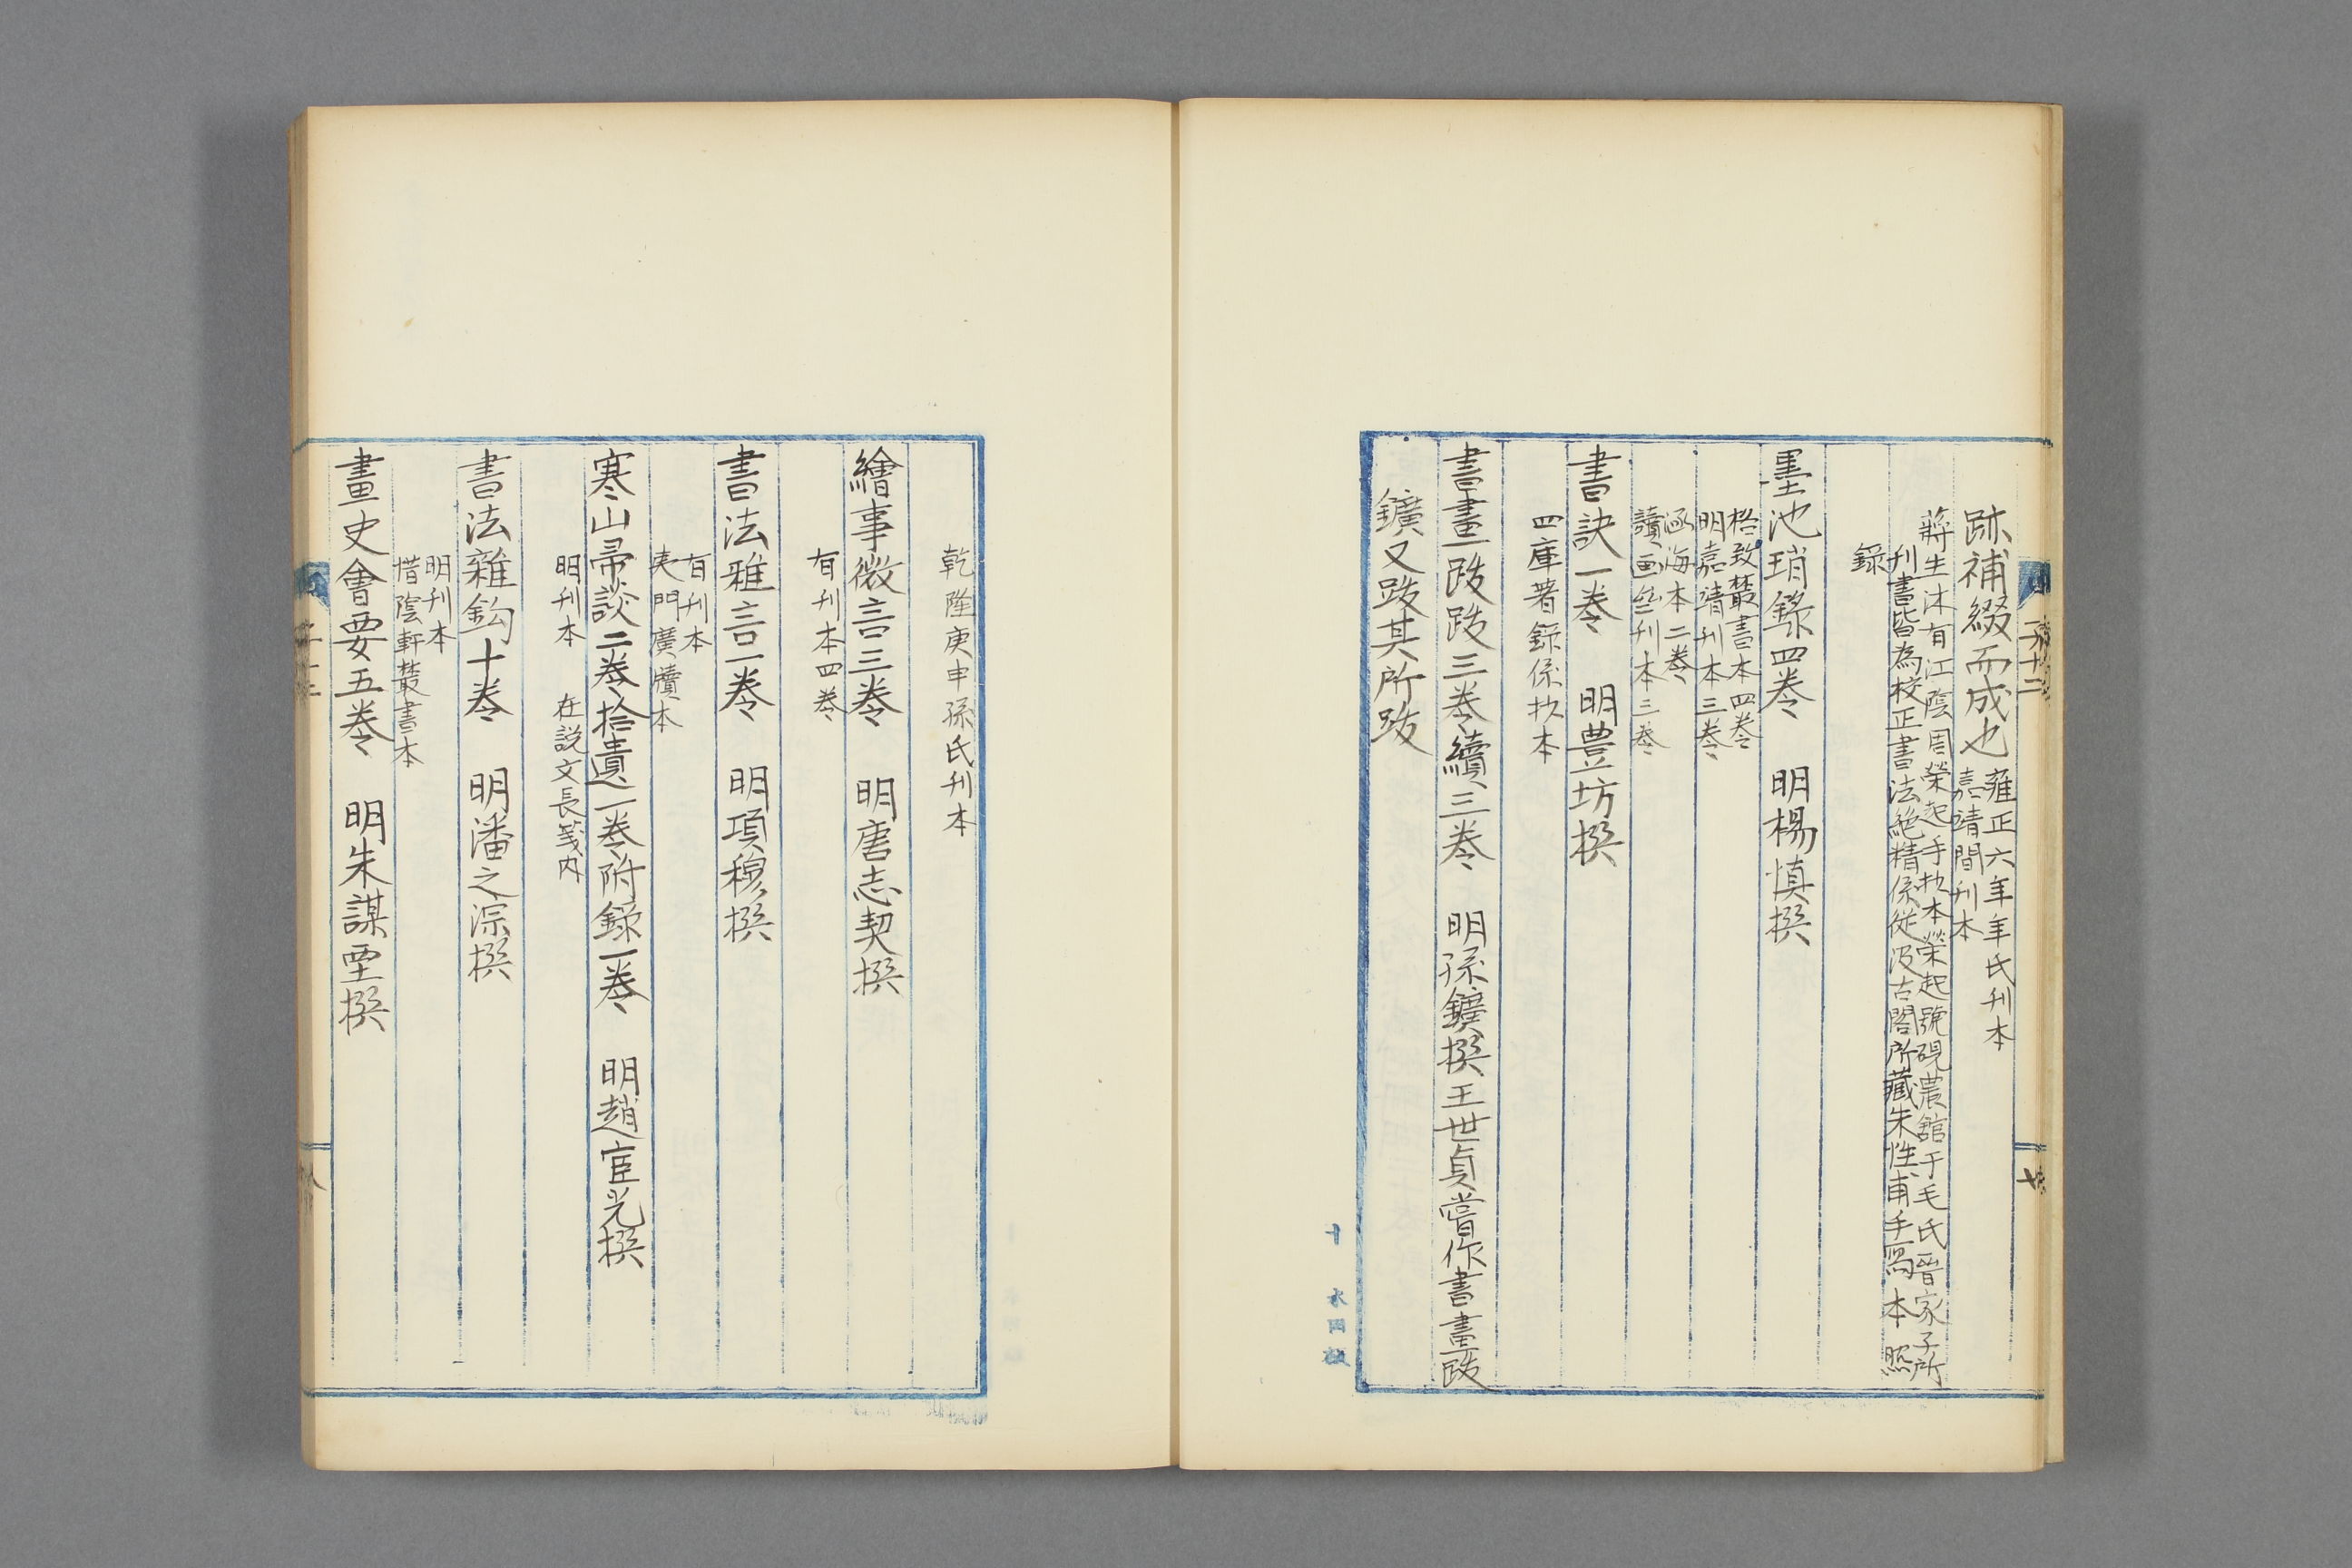 跡補綴而成也
雍正六年年氏刊本
嘉靖間刊本
蔣生沐有江陰周榮起手抄本榮起號硯農舘于毛氏晉家子所
刊書皆為校正書法絶精係從汲古閣所藏朱性甫手寫本照
錄
墨池瑣錄四卷 明楊慎撰
格致叢書本四卷
明嘉靖刊本三卷
函海本二卷
讀画斋刊本三卷
書訣一卷 明豊坊撰
四庫著錄係抄本
書畫跋跋三卷續三卷 明孫鑛撰王世貞嘗作書畫跋
鑛又跋其所跋
乾隆庚申孫氏刊本
繪事微言三卷 明唐志契撰
有刊本四卷
書法雅言一卷 明項穆撰
有刊本
夷門廣牘本
寒山帚談二卷拾遺一卷附錄一卷 明趙宦光撰
明刊本 在説文長箋内
書法雜鈎十卷 明潘之淙撰
明刊本
惜陰軒叢書本
畫史會要五卷 明朱謀垔撰